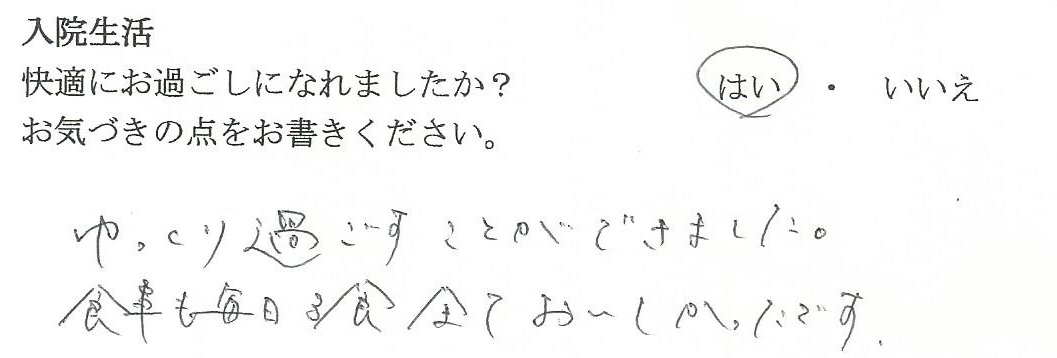 入院生活
快適にお過ごしになれましたか？ はい ・ いいえ
お気づきの点をお書きください。
ゆっくり過ごすことができました。
食事も毎日3食全ておいしかったです.